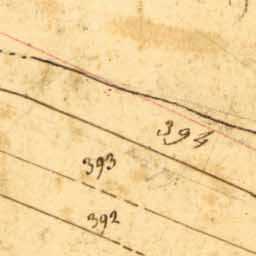 394
393
392